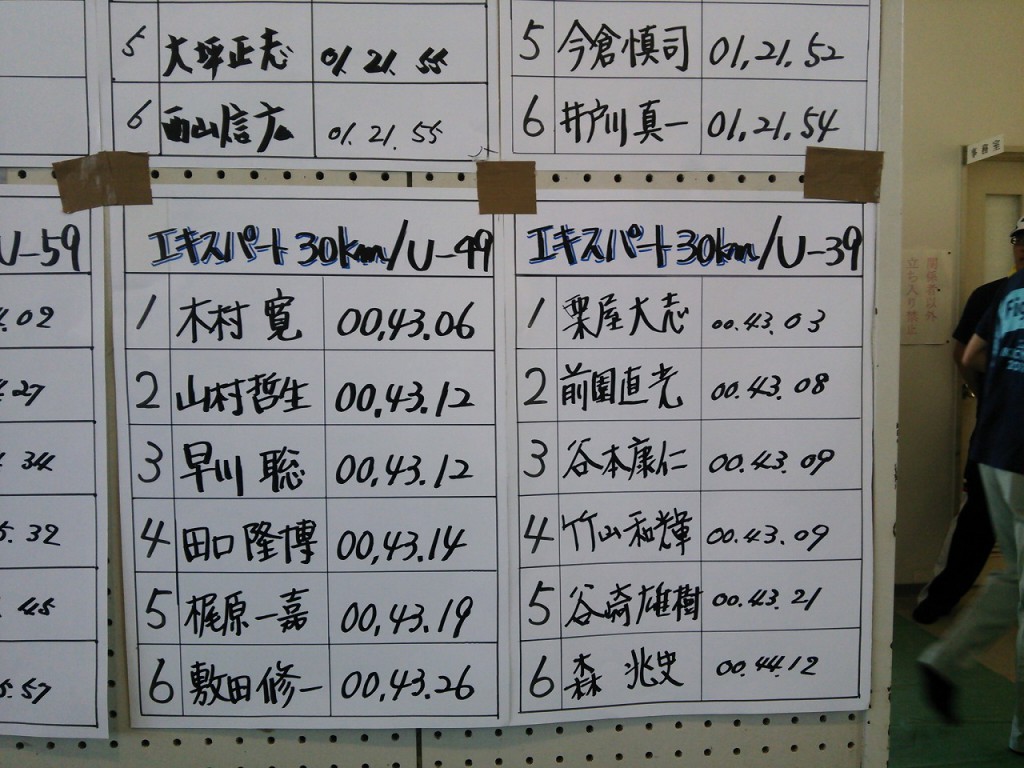 5 大坪正志 01.21.55
6 西山信広 01.21.55
5 今倉慎司 01,21.52
6 井戸川真一 01,21.54
U-59
.02
.27
.34
5.32
.45
5.57
エキスパート30km/U-49
1 木村 寛 00,43.06
2 山村哲生 00,43.12
3 早川 聡 00,43.12
4 田口隆博 00,43.14
5 梶原一嘉 00,43.19
6 敷田修一 00,43.26
エキスパート30km/U-39
1 栗屋大志 00.43.03
2 前園直光 00.43.08
3 谷本康仁 00.43.09
4 竹山和輝 00.43.09
5 谷崎雄樹 00.43.21
6 森 兆史 00.44.12
事務室
関係者以外
立ち入り禁止